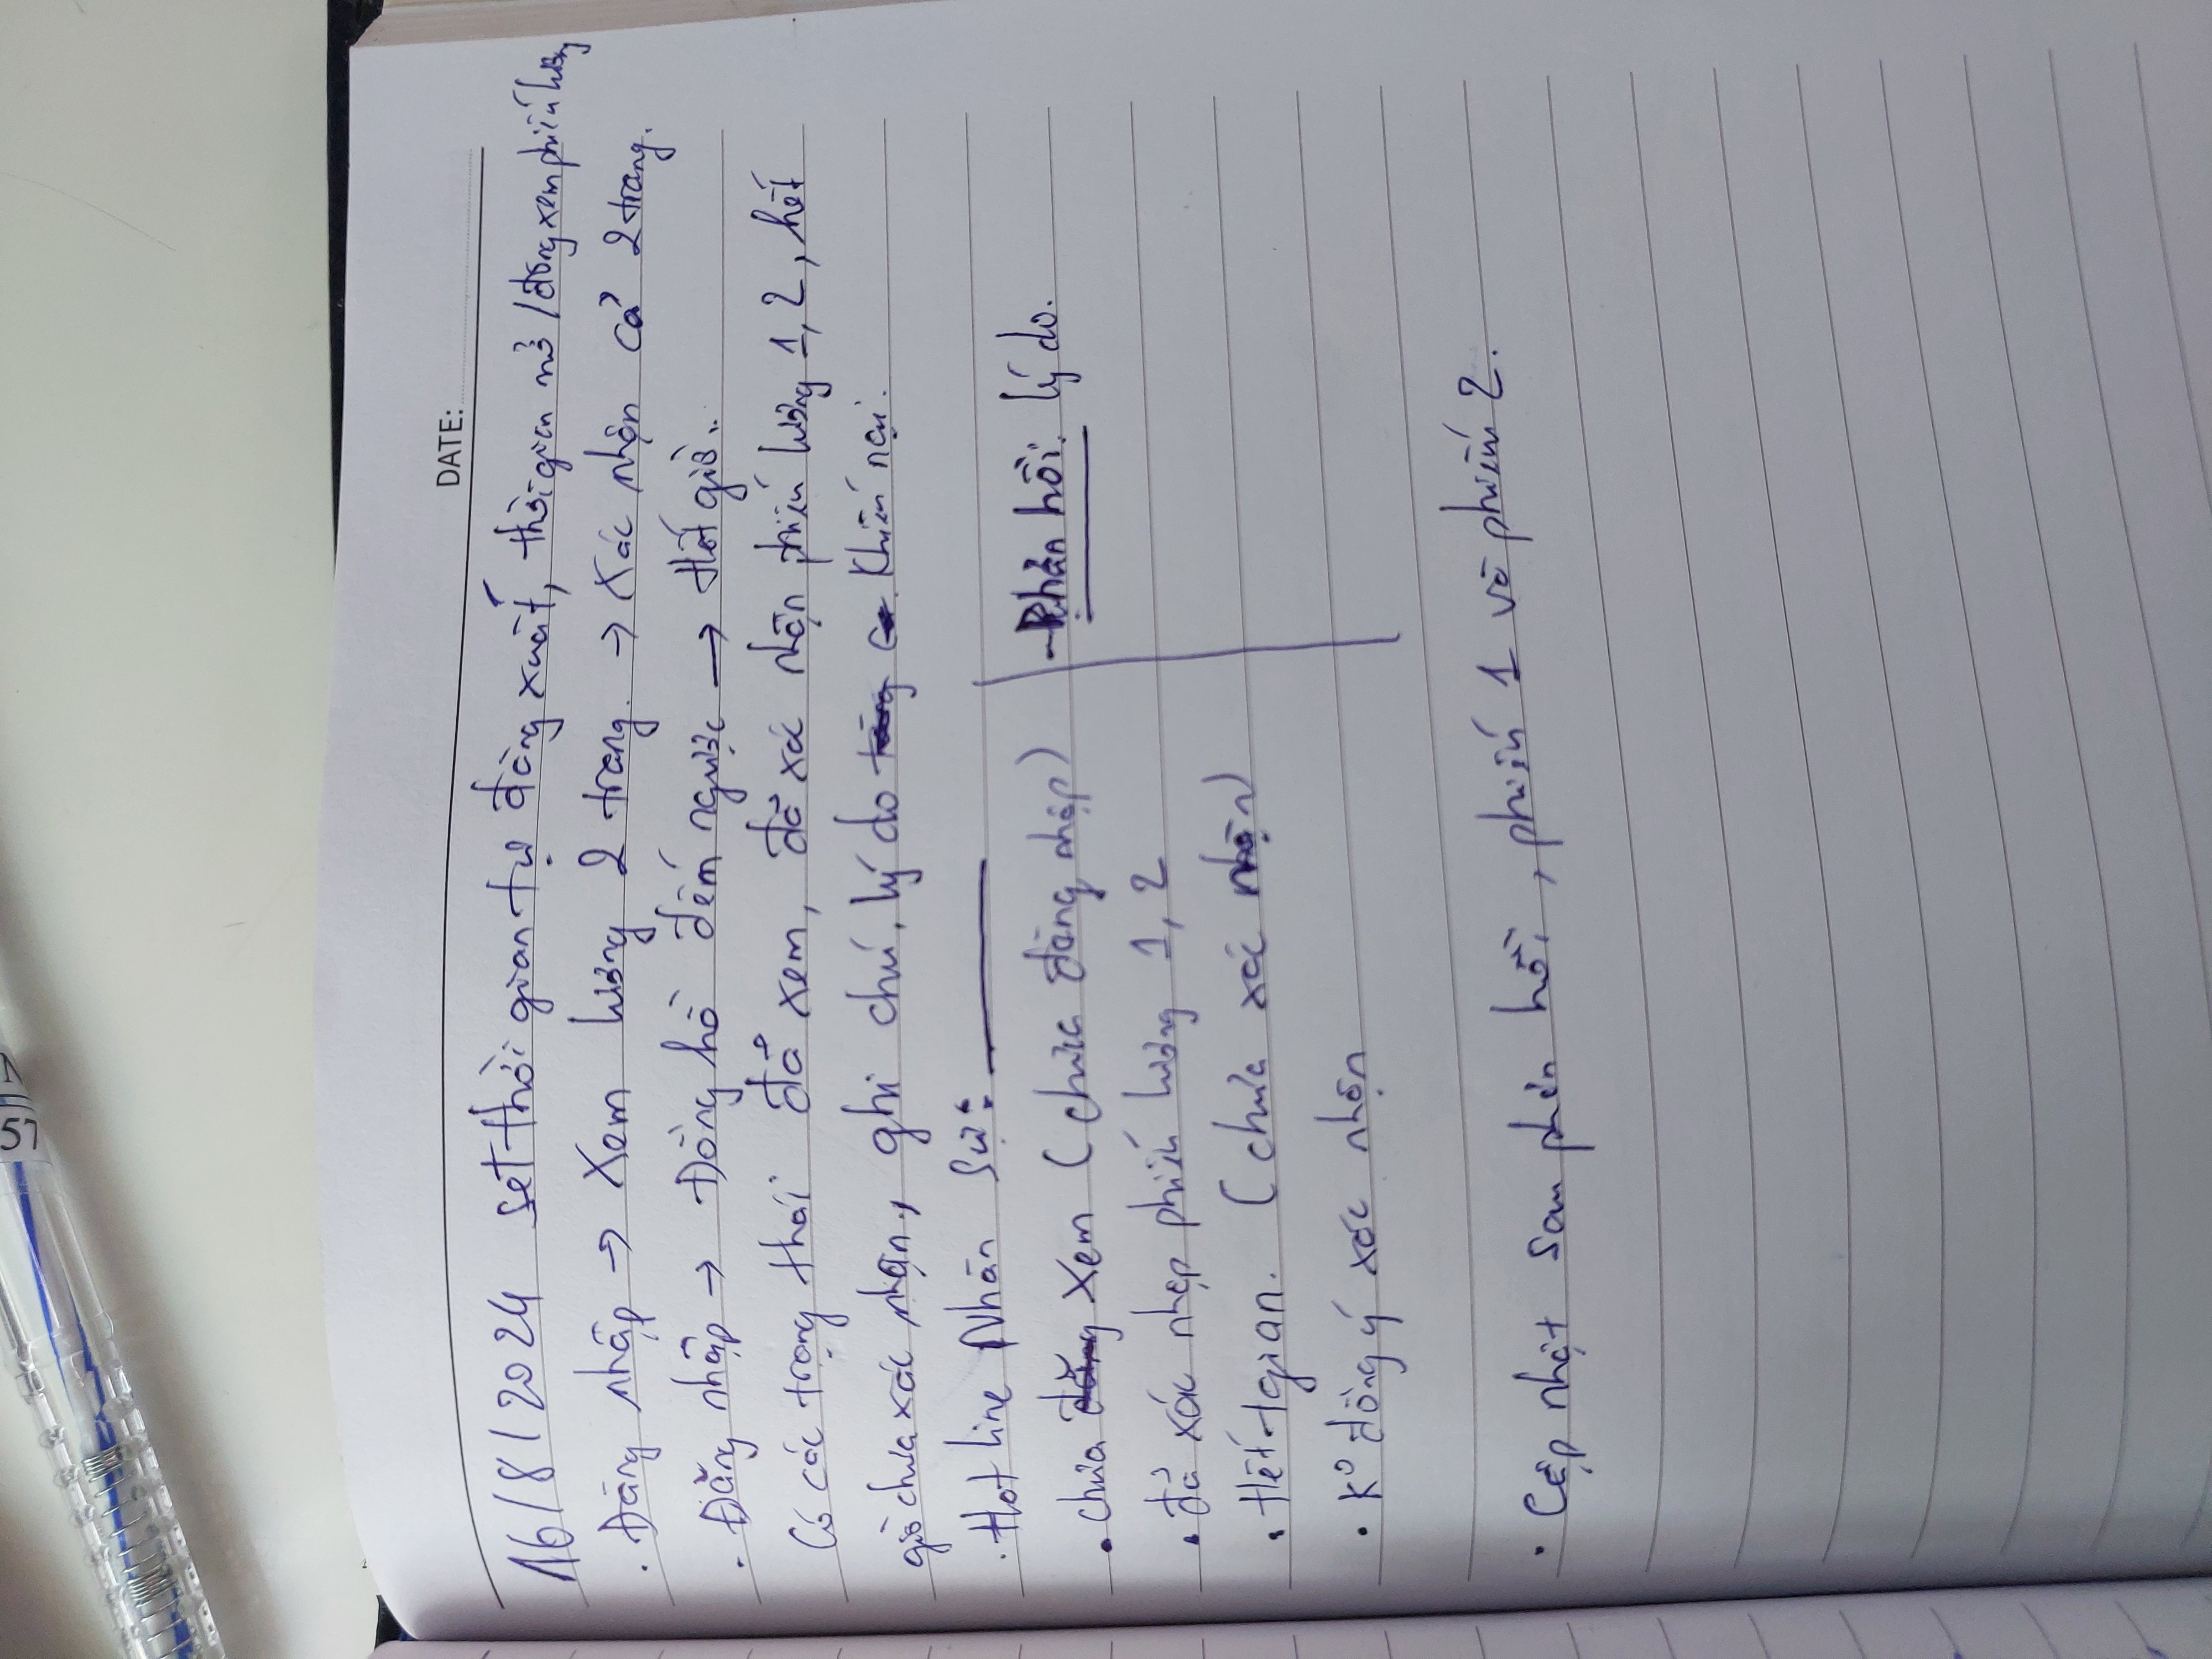 51
DATE:
16/8/2024 set thời gian tự đăng xuất, thời gian mở / đóng xem phiếu lương
. Đăng nhập → Xem lương 2 trang. → Xác nhận cả 2 trang.
. Đăng nhập → Đồng hồ đếm ngược → Hết giờ..
Có các trạng thái đã xem, đã xác nhận phiếu lương 1, 2, hết
giờ chưa xác nhận, ghi chú, lý do khiếu nại.
. Hotline Nhân sự:
• chưa xem (chưa đăng nhập)
- Phản hồi: lý do.
• đã xác nhập phiếu lương 1, 2
• Hết tgian. (chưa xác nhận)
• K° đồng ý xác nhận
• Cập nhật sau phản hồi, phiếu 1 và phiếu 2.